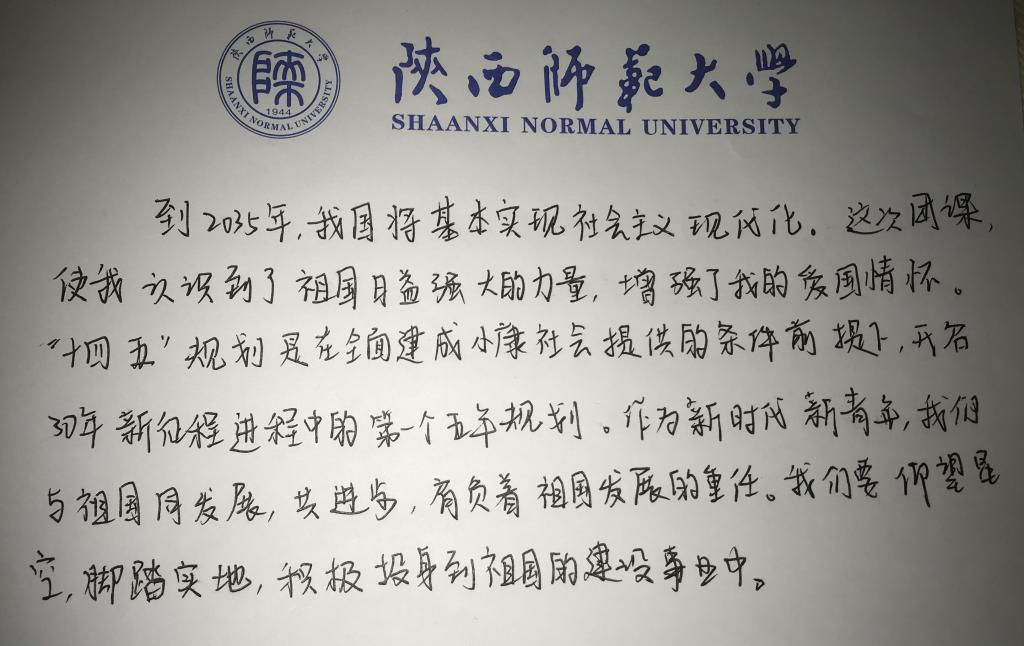 陕西师范大学
SHAANXI NORMAL UNIVERSITY
1944
陕西师范大学
SHAANXI NORMAL UNIVERSITY
到2035年,我国将基本实现社会主义现代化。这次团课,
使我认识到了祖国日益强大的力量,增强了我的爱国情怀。
“十四五”规划是在全面建成小康社会提供的条件前提下,开启
30年新征程进程中的第一个五年规划。作为新时代新青年,我们
与祖国同发展,共进步,肩负着祖国发展的重任。我们要仰望星
空,脚踏实地,积极投身到祖国的建设事业中。